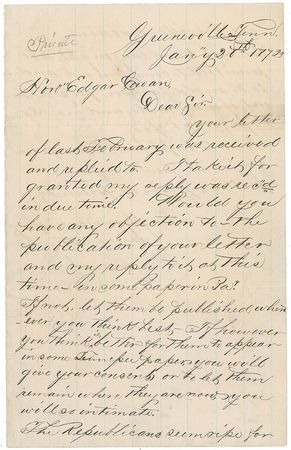 Private
Greeneville Tenn.
Jan'y 28th 1872
Hon' Edgar Cowan,
Dear Sir.
your letter
of last February was received
and replied to. I take it for
granted my reply was rec'd
in due time. Would you
have any objection to the
publication of your letter
and my reply to it at this
time in some paper in Pa?
If not, let them be published where
ever you think best. If however
you think better for them to appear
in some paper you will
give your consent or to let them
remain where they are now you
will so intimate.
The Republicans seem ripe for